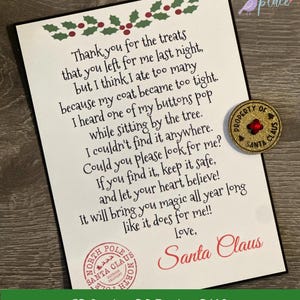 place
Thank you for the treats
that you left for me last night,
but I think I ate too many
because my coat became too tight.
I heard one of my buttons pop
while sitting by the tree.
I couldn't find it anywhere.
Could you please look for me?
If you find it, keep it safe,
and let your heart believe!
It will bring you magic all year long
like it does for me!!
love,
Santa Claus
PROPERTY OF
SANTA CLAUS
NORTH POLE
SANTA CLAUS